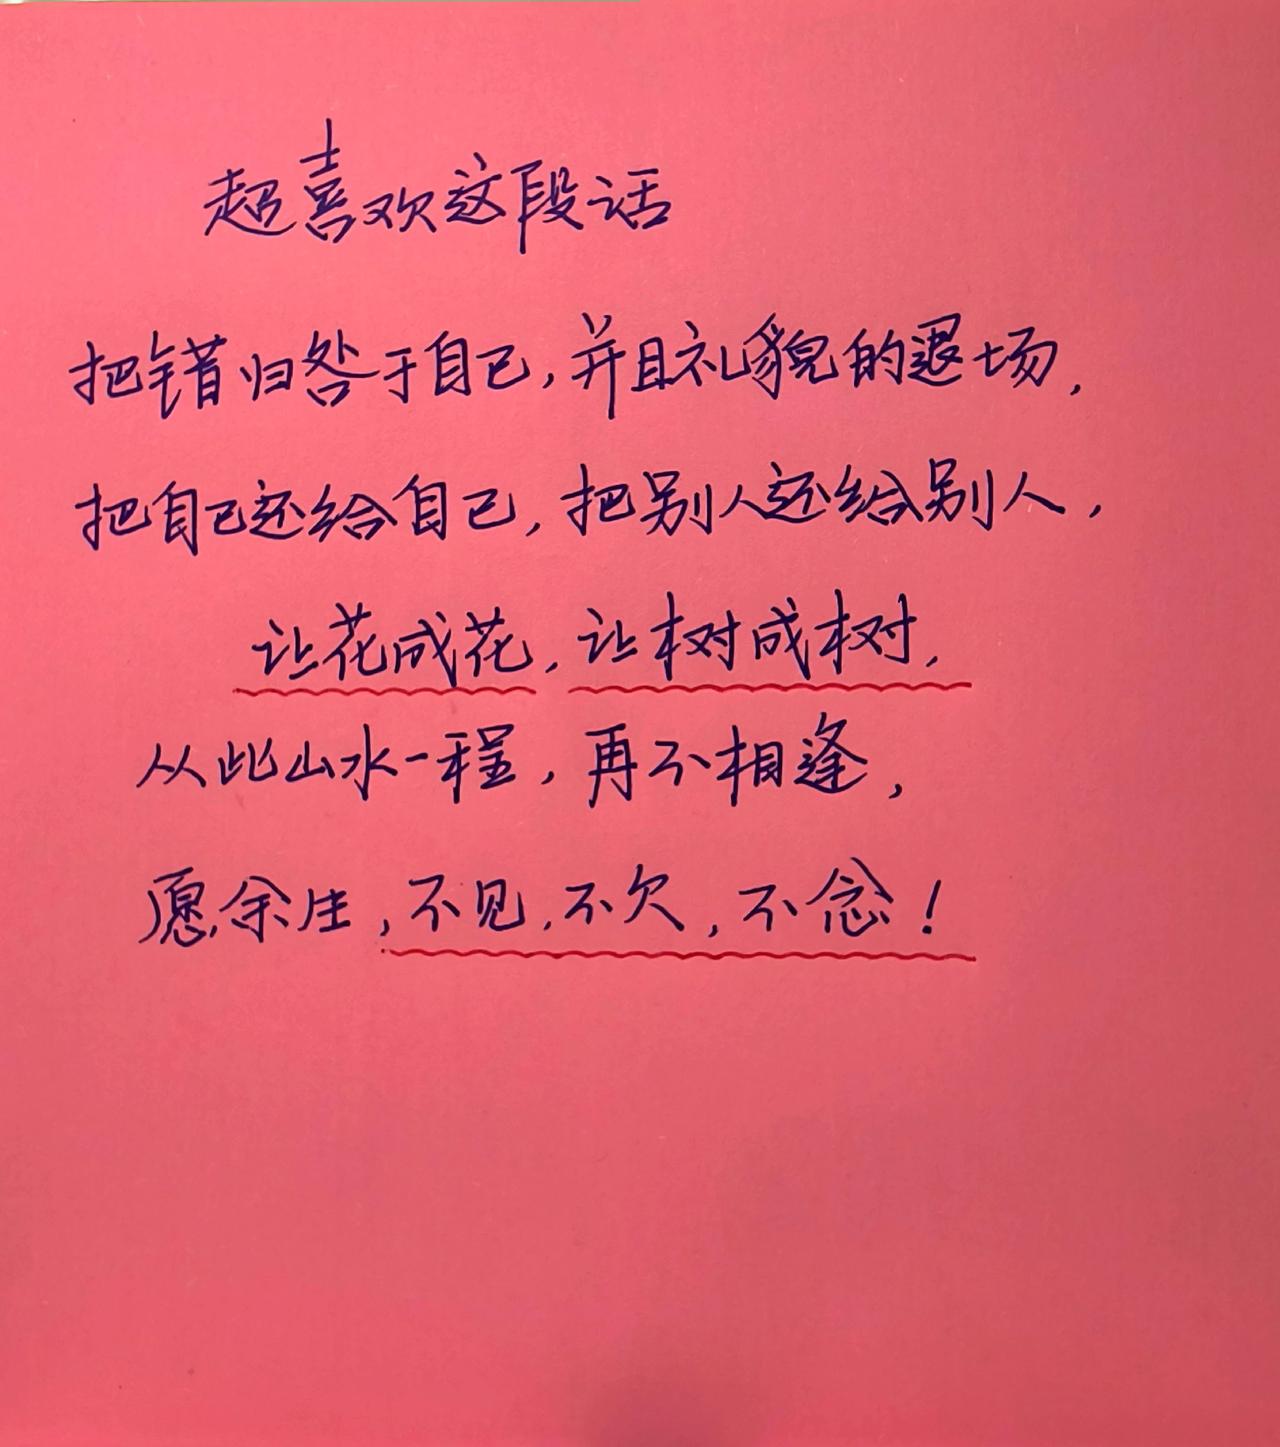 超喜欢这段话
把错归咎于自己,并且礼貌的退场,
把自己还给自己,把别人还给别人,
让花成花,让树成树,
从此山水一程,再不相逢,
愿余生,不见,不欠,不念!